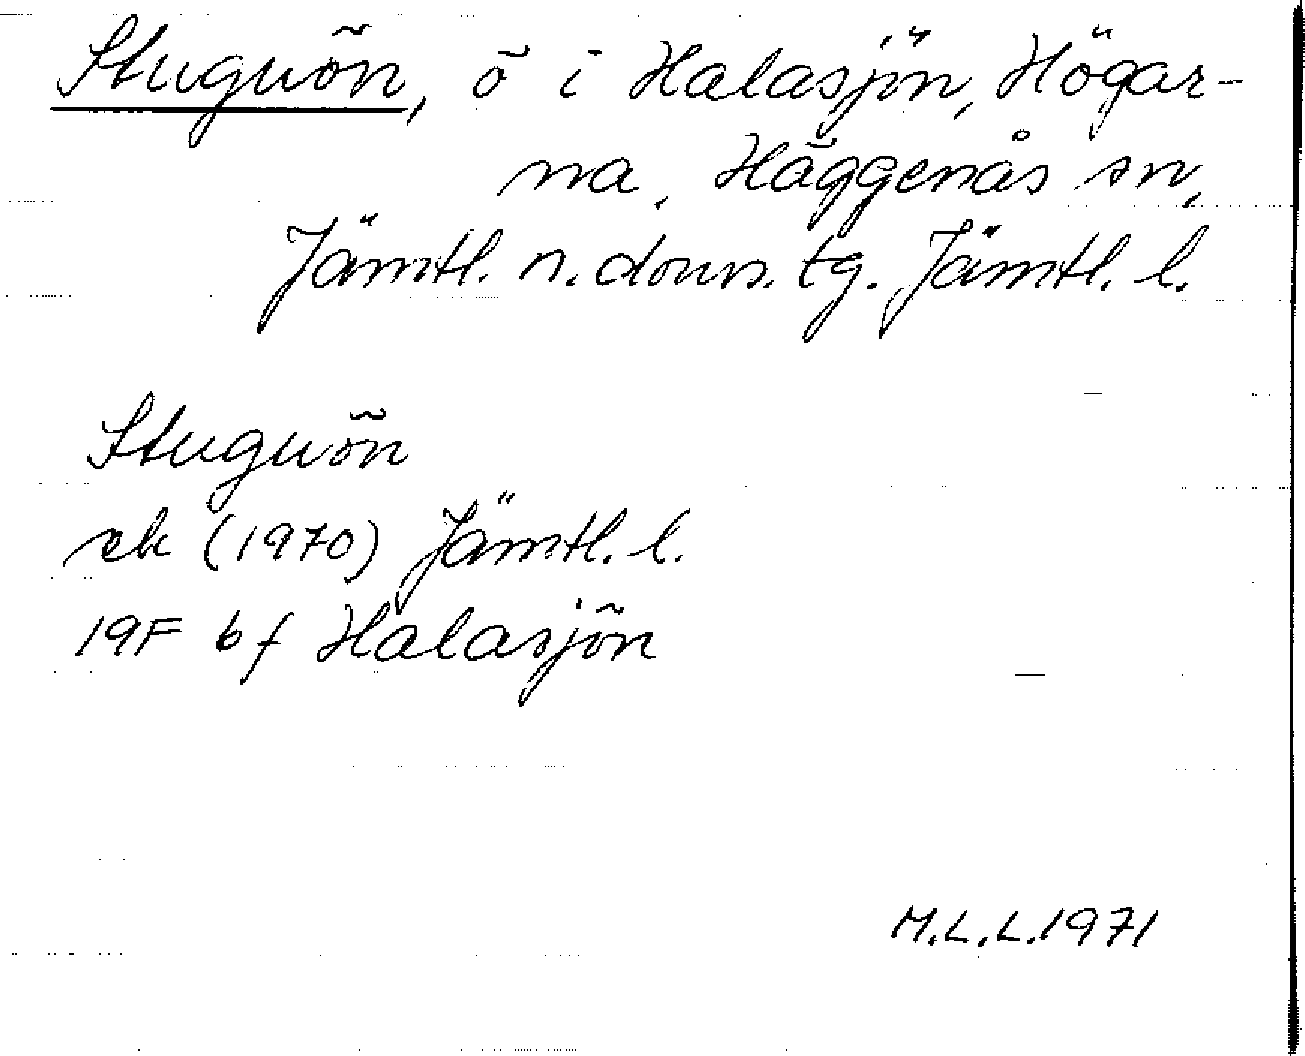 Stuguön, ö i Halasjön, Högar-
na, Häggenås sn,
Jämtl. n. doms. tg. Jämtl. l.
Stuguön
ek (1970) Jämtl. l.
19F bf Halasjön
M.L.L. 1971